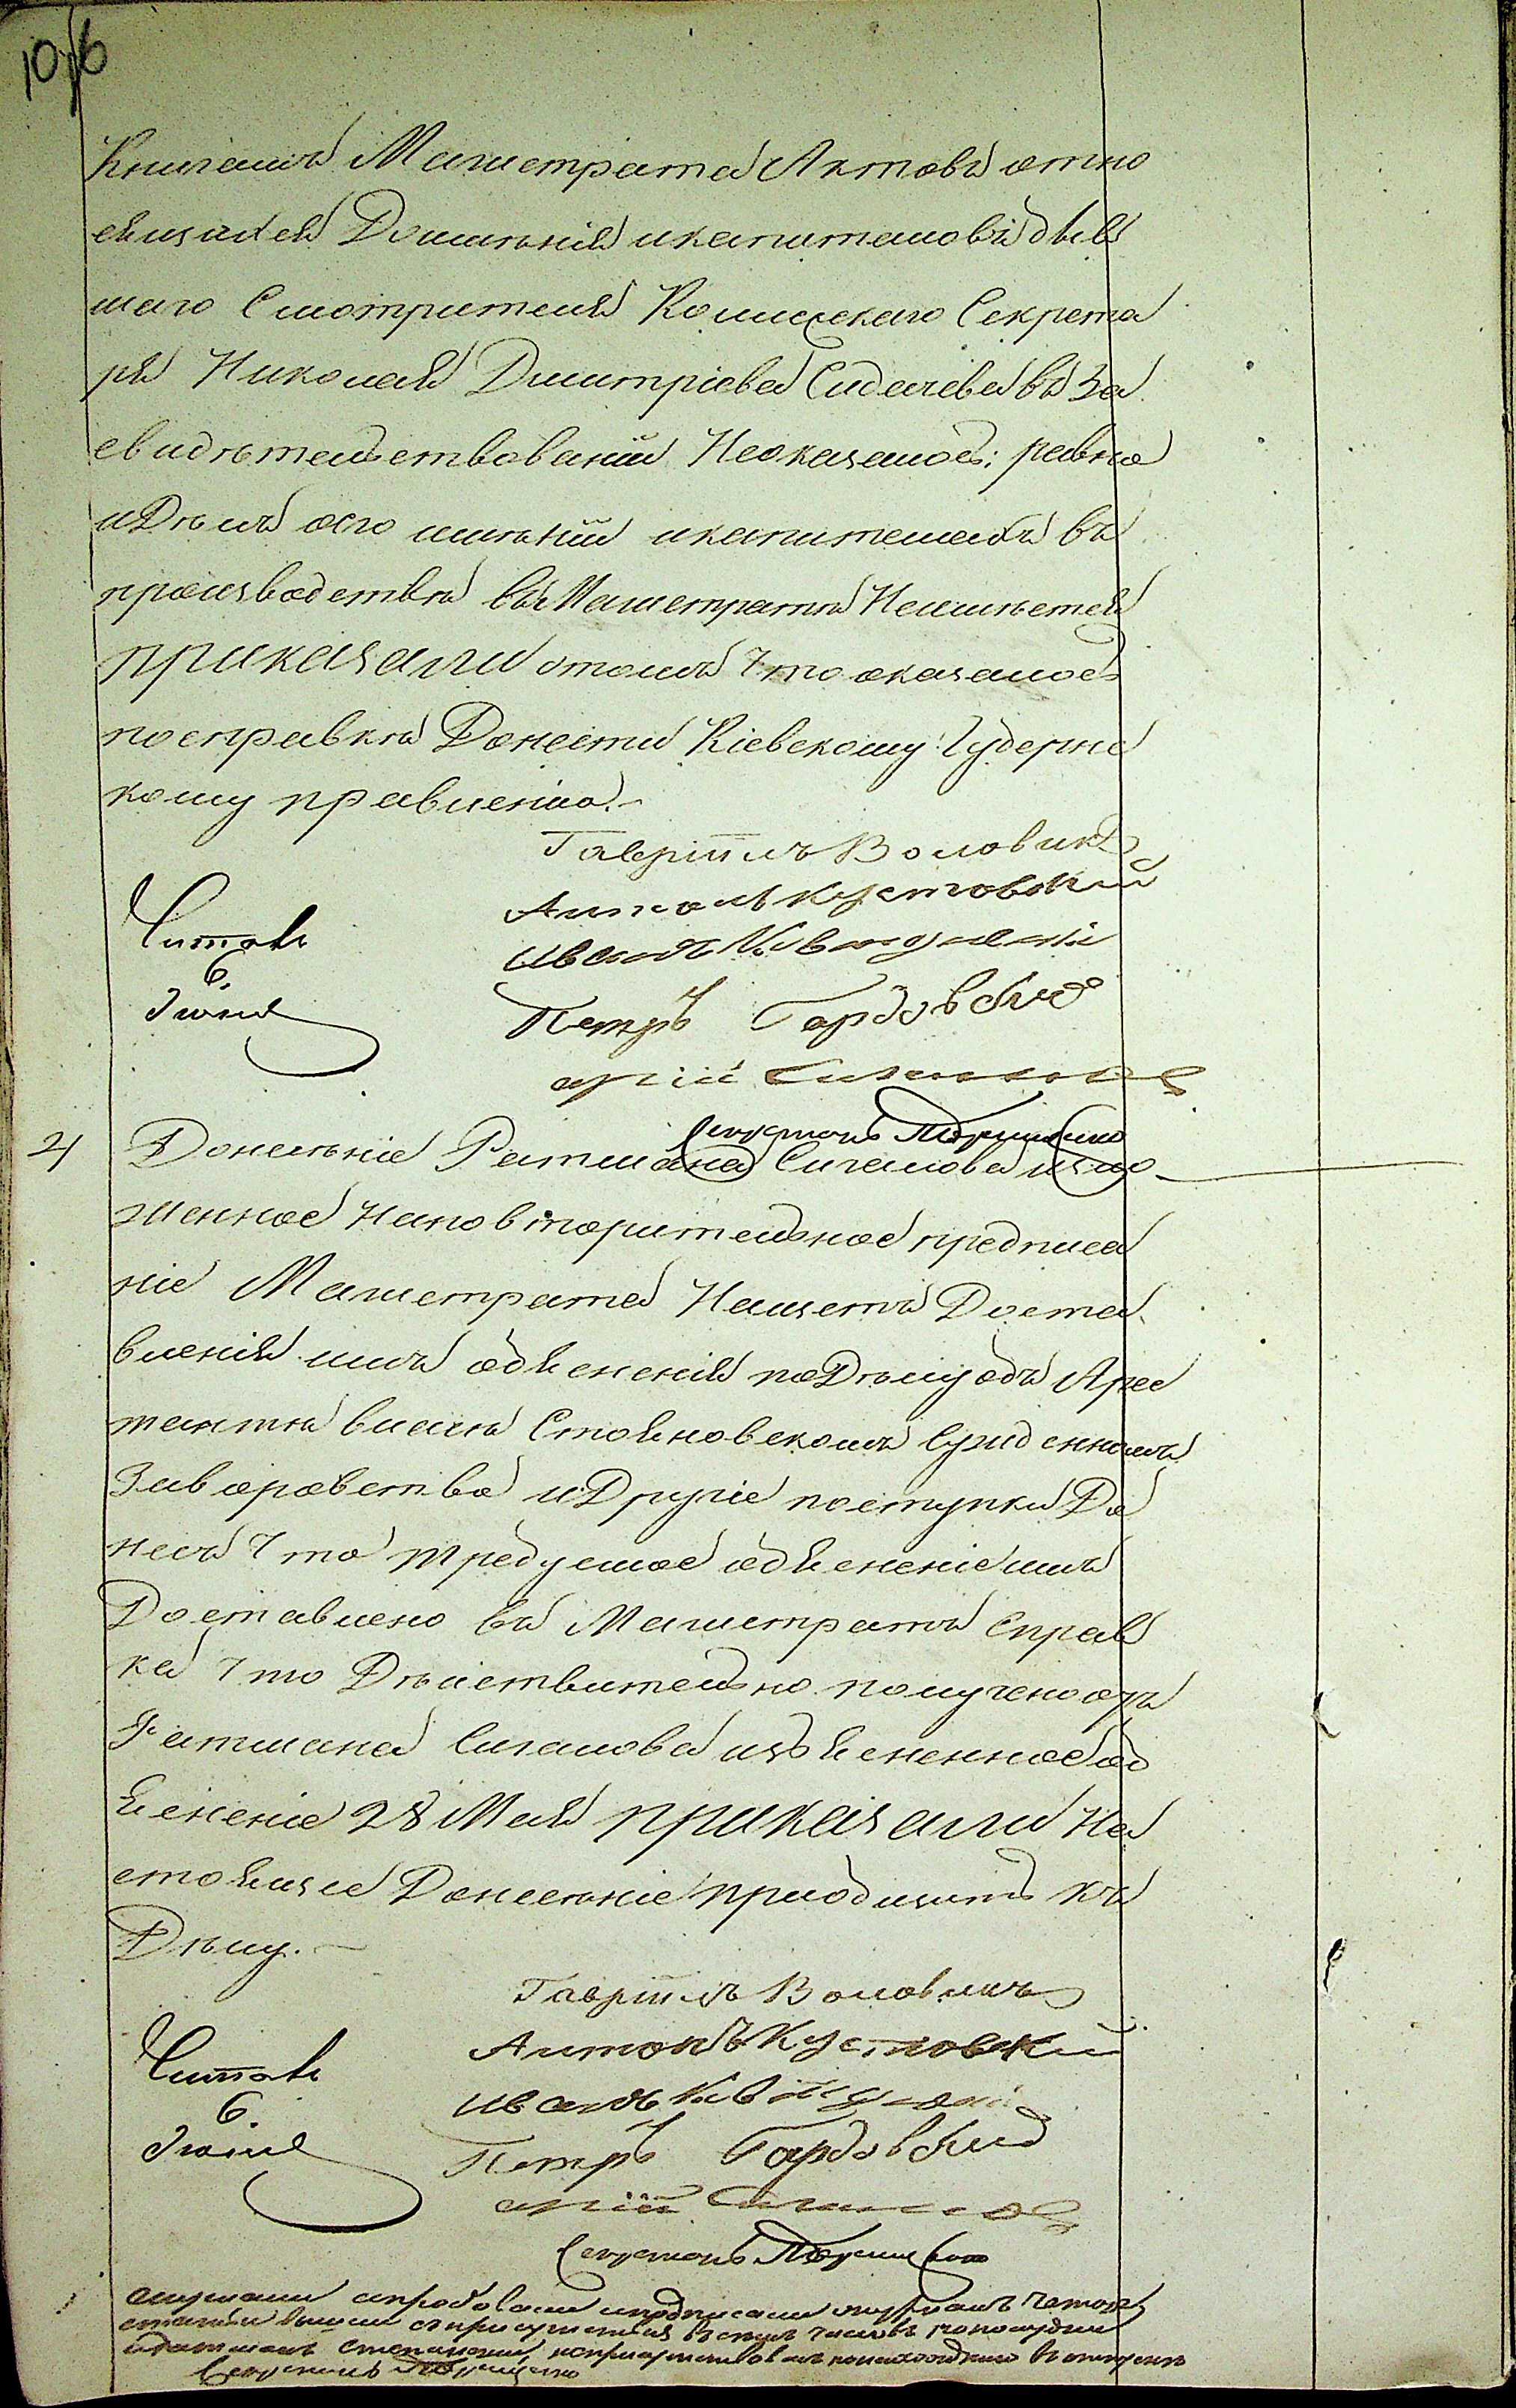 10об
Книгамъ Магистрата Актовъ отно
сящихся Доимѣнія икапиталовъ быв
шаго Смотрителя Колежскаго Секрета
ря Николая Дмитріева Сидачева въ За
свидѣтельствованіи Неоказалось: равно
иДѣлъ оего имѣніи икапиталахъ въ
производствѣ въ Магистратѣ Неимѣется
приказали отомъ что оказалось
посправкѣ Донести Кіевскому Губернс
кому правленію.
Гавріилъ Воловикъ
Антонъ Кустовскій
Иванъ
Петръ
Читалъ
6.
Іюня
Секретарь
2) Донесѣніе Ратмана Сигалова изло
женное Наповторительное предписа
ніе Магистрата Нащетъ Доста
вленія имъ объясненія поДѣлу объ Арес
тантѣ Стояновскомъ сужденномъ
Заворовство иДругіе поступки До
несъ что требуемое объясненіе имъ
Доставлено въ Магистратъ Справ
ка что Дѣйствительно получено отъ
Ратмана Сигалова изъясненное об
ясненіе 28 Мая приказали На
стоящее Донесѣніе пріобщить къ
Дѣлу.
Гавріилъ Воловикъ
Антонъ Кустовскій
Иванъ
Петръ
Читалъ
6.
Іюня
Секретарь
слушали иподписали
Секретарь